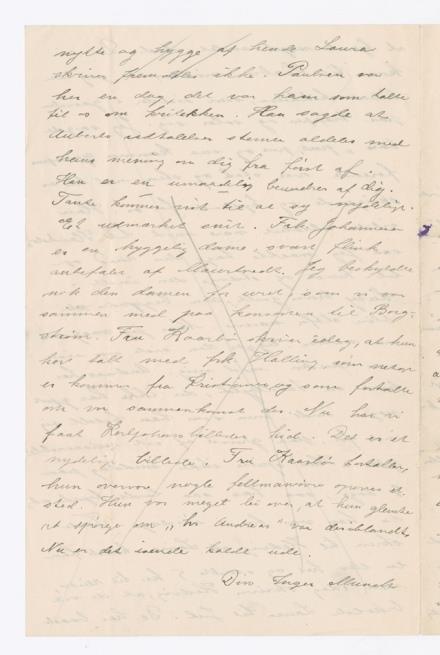 nytte og hygge af hende Laura
skriver fremdeles ikke. Paulsen var
her en dag, det var ham som talte
til os om kritikken. Han sagde at
Auberts udtalelser stemer aldeles med
hans mening om dig fra først af.
Han er en umaadelig beundrer af dig.
Tante kommer vist til at sy nydeligt.
Et udmærket snit. Frk. Johannesen
er en hyggelig dame, svært flink
anbefalet af
nok den damen for uret som vi var
sammen med paa konserten til Borg-
strøm. Fru Kaarbø skriver idag, at hun
har talt med frk Halling, som netop
er kommen fra Kristiania og som fortalte
om vor sammenkomst der. Nu har vi
faat billedet hid. Det er et
nydelig billede. Fru Kaarbø fortaller,
hun overvar nogle feltmanøvre oppe et
sted. Hun var meget lei over, at hun glemte
at spørge om „hr Andreas“ var deriblandt.
Nu er det isende koldt ude.
Din Inger Munch